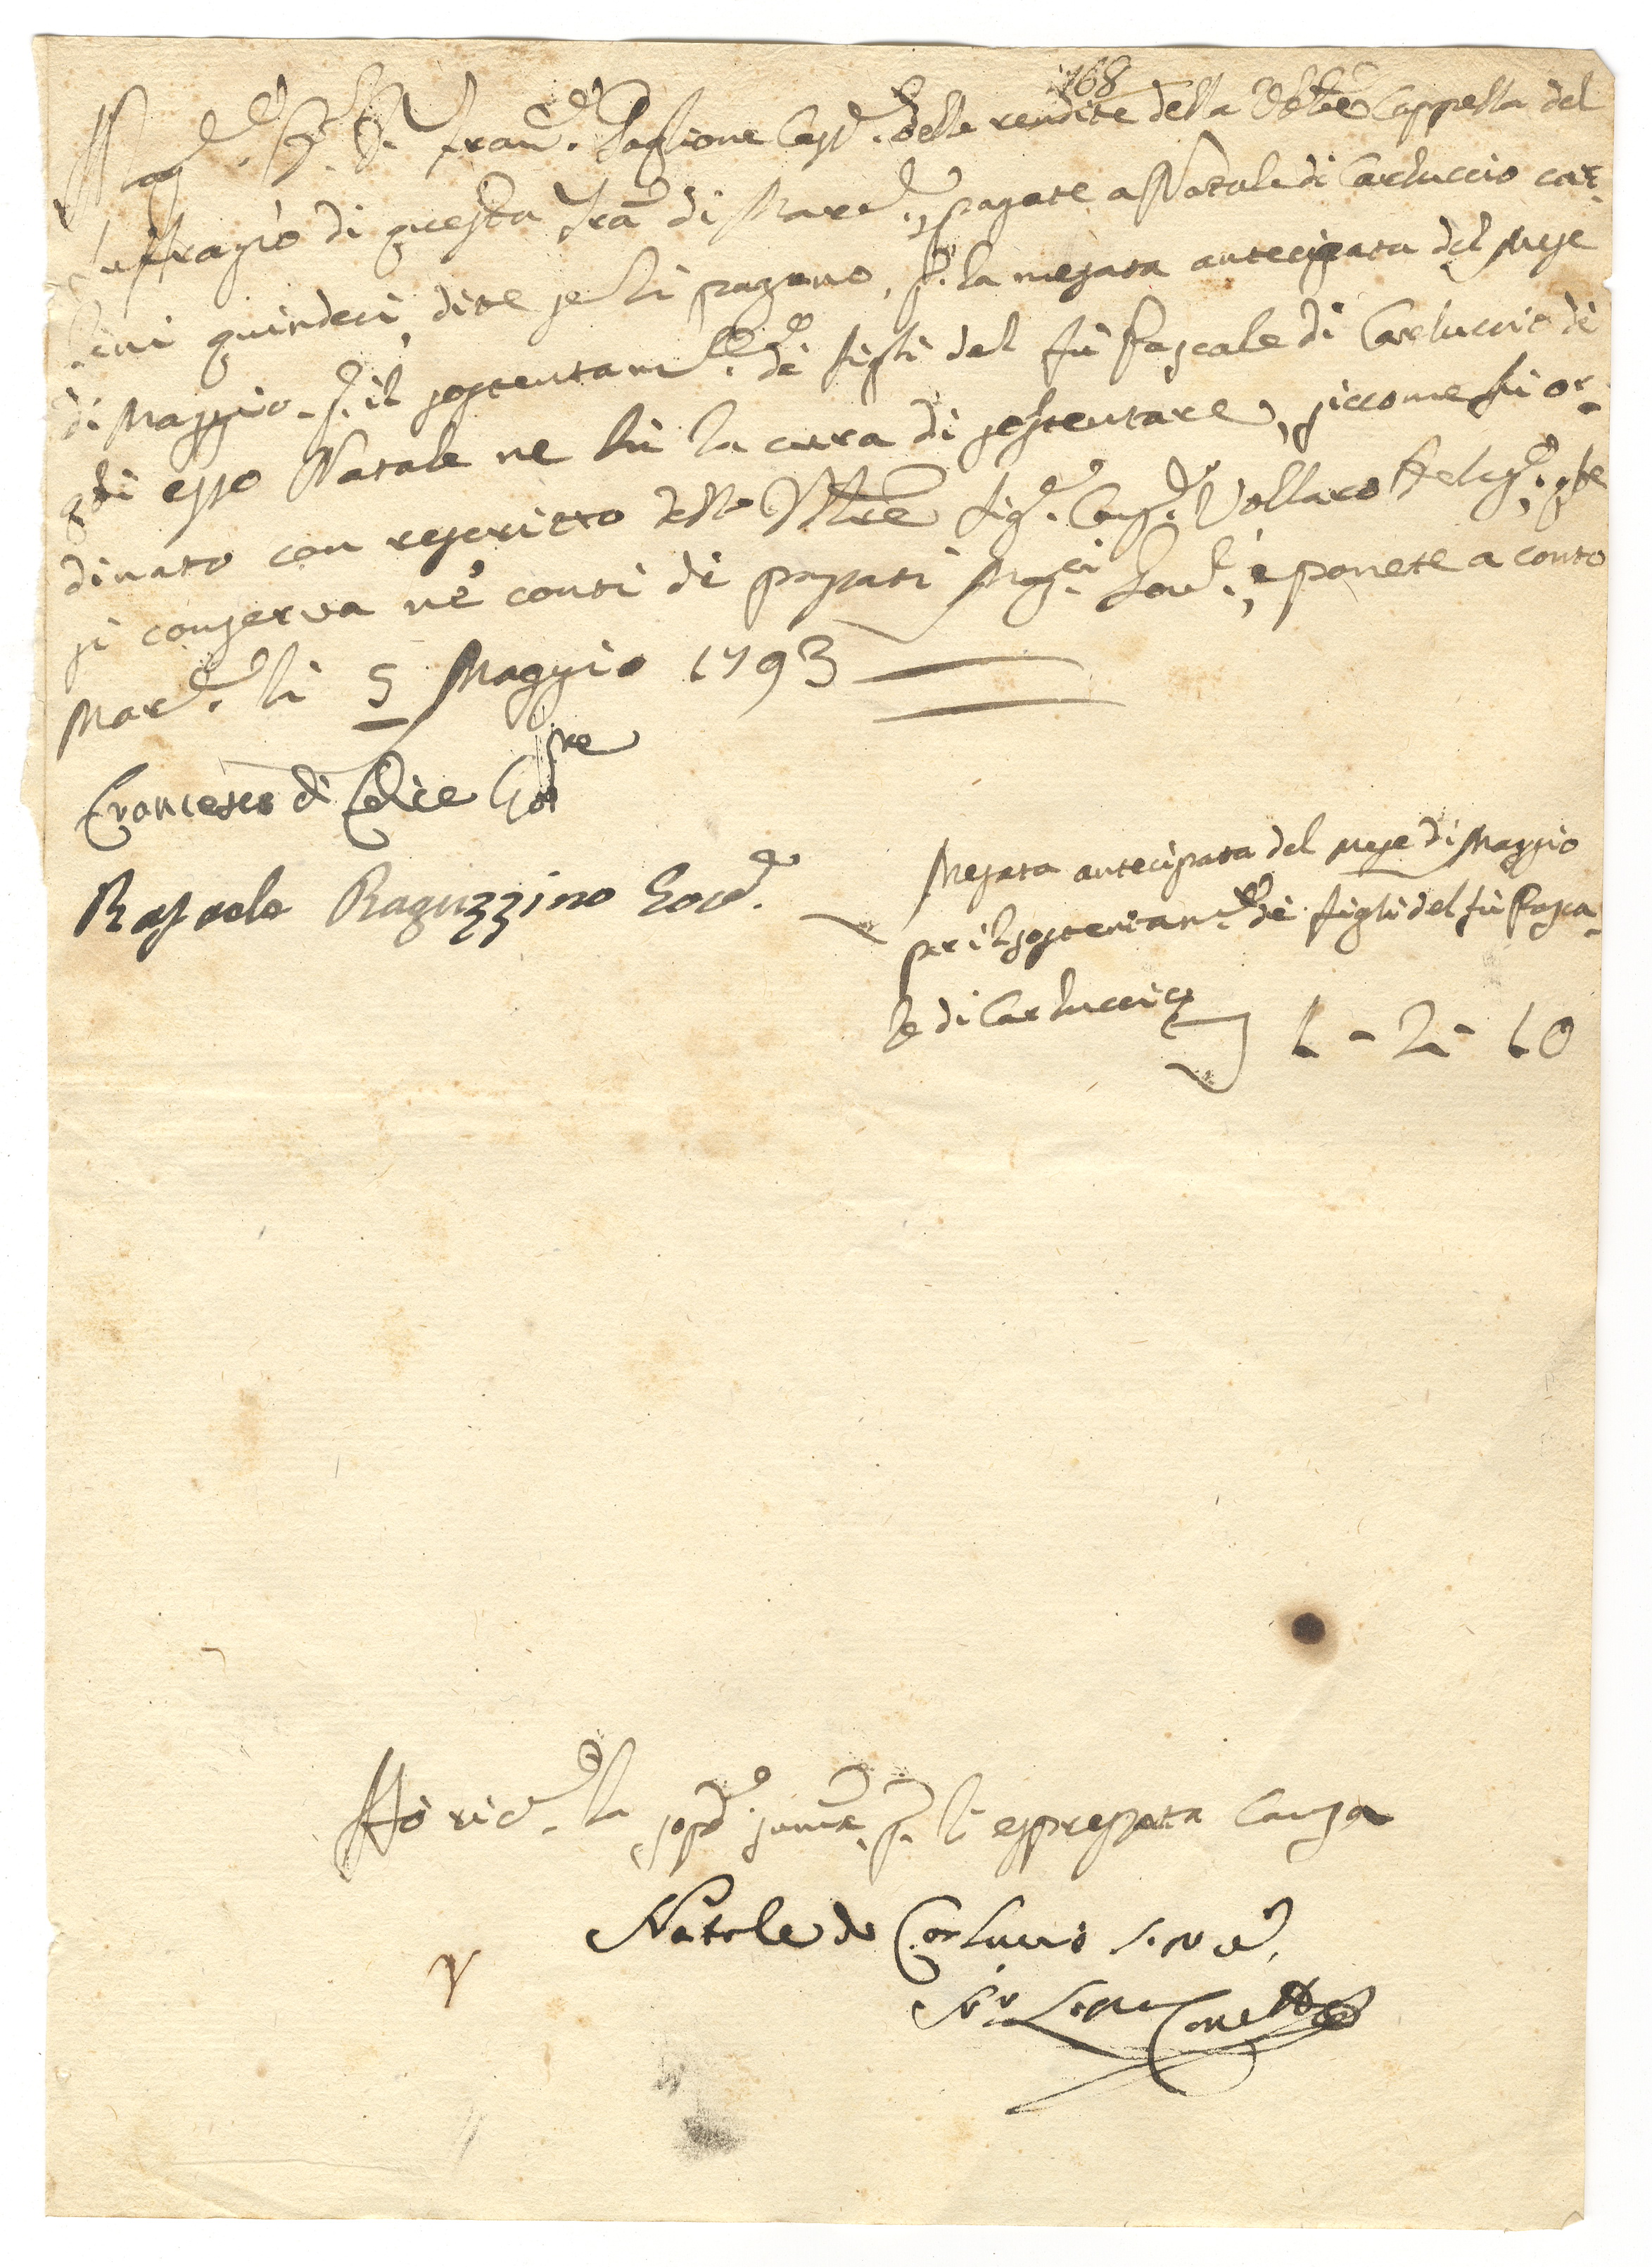 168
Mag.co D. Fran.co Paglione Cass.e delle rendite della Ven.le Cappella del
Suffragio di questa Tra di Mard.e, pagate a Natale di Carluccio car-
lini quindeci, dite se li pagano, p. la mesata antecipata del mese
di Maggio p. il sostentam.to de figli del fù Pascale di Carluccio de
q.li esso Natale ne hà la cura di sostentare, siccome fù or-
dinato con rescritto dello Ill.re Sig.r Cons.r Vollaro Deleg.to, che
si conserva ne' conti de passati Mag.ci Gov.i, e ponete a conto
Mard.e li 5 Maggio 1793
Francesco di Felice Gov.re
Rafaele Raguzzino Gov.e
Mesata antecipata del mese di Maggio
per il sostentam.to de figli del fù Pasca-
le di Carluccio 1 - 2 - 10
Hò ric.to la sop.a suma p. li espressata causa
Natale di Carluccio